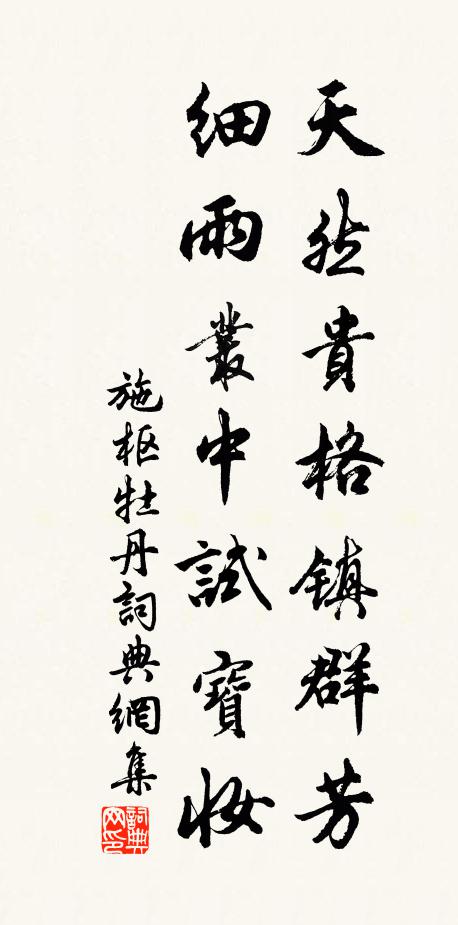 天然貴格镇群芳
細雨叢中試寶妆
施枢牡丹詞典網集
詞典网印